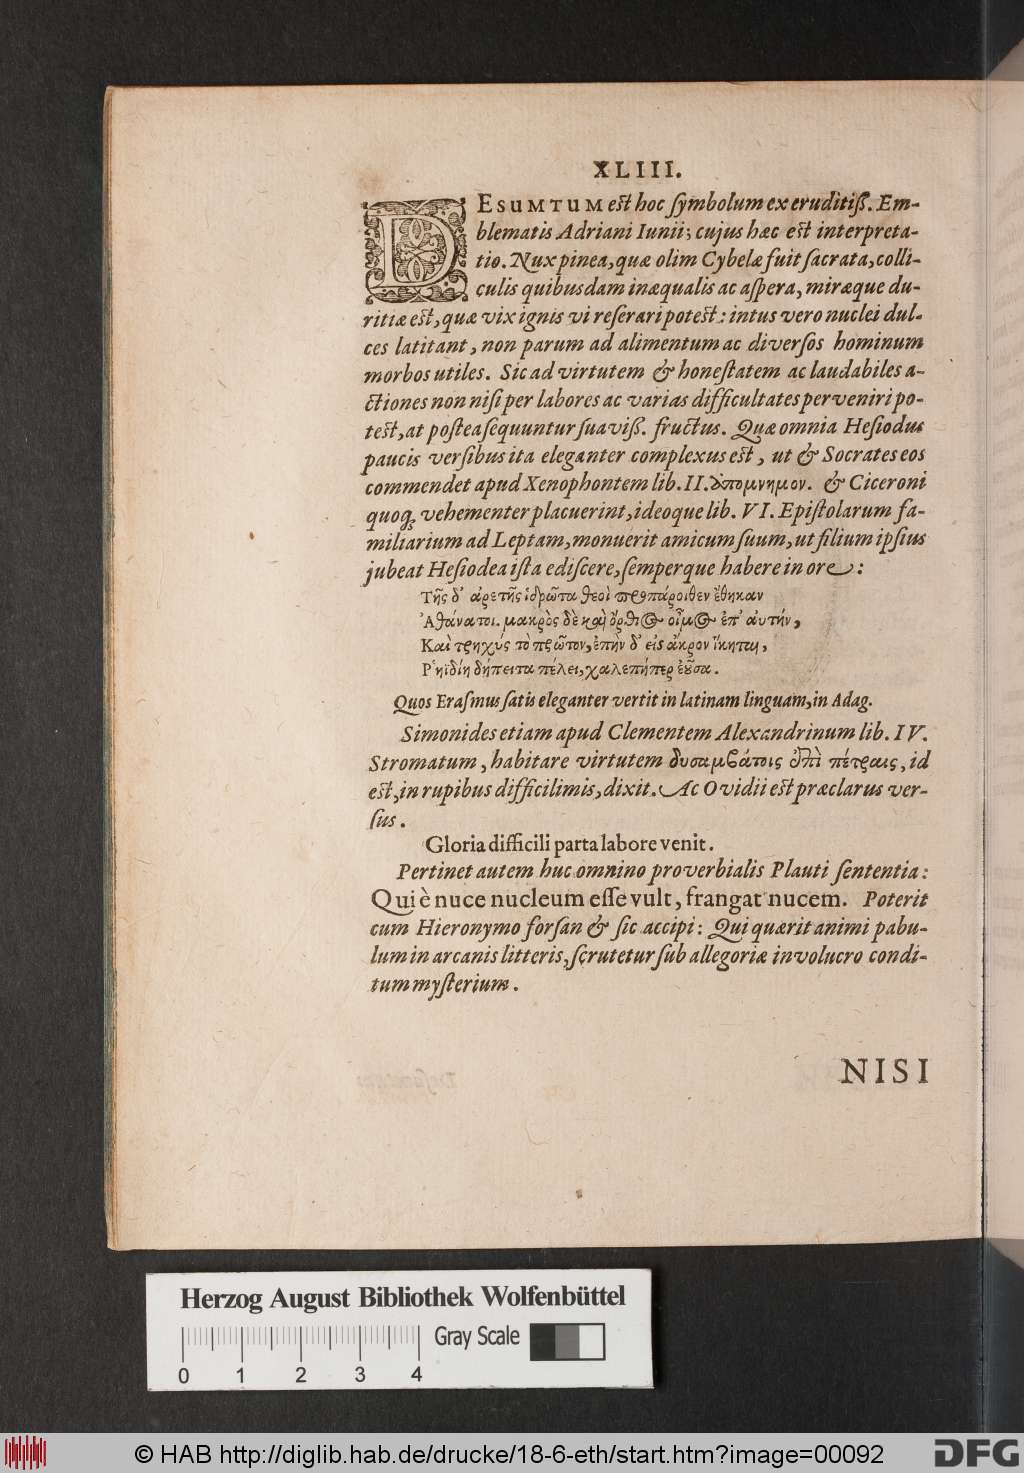 XLIII.
DESUMTUM est hoc ſymbolum ex eruditiß. Em-
blematis Adriani Iunii; cujus hæc est interpreta-
tio. Nux pinea, quæ olim Cybelæ fuit ſacrata, colli-
culis quibusdam inæqualis ac aſpera, miræque du-
ritiæ est, quæ vix ignis vi reſerari potest: intus vero nuclei dul-
ces latitant, non parum ad alimentum ac diverſos hominum
morbos utiles. Sic ad virtutem & honeſtatem ac laudabiles a-
ctiones non niſi per labores ac varias difficultates perveniri po-
test, at poſtea ſequuntur ſuaviß. fructus. Quæ omnia Heſiodus
paucis verſibus ita eleganter complexus est, ut & Socrates eos
commendet apud Xenophontem lib. II. ὑπομνημον. & Ciceroni
quoq; vehementer placuerint, ideoque lib. VI. Epiſtolarum fa-
miliarium ad Leptam, monuerit amicum ſuum, ut filium ipſius
jubeat Heſiodea iſta ediſcere, ſemperque habere in ore:
Τῆς δ' ἀρετῆς ἱδρῶτα θεοὶ προπάροιθεν ἔθηκαν
Ἀθάνατοι. μακρὸς δὲ καὶ ὄρθιος οἶμος ἐπ' αὐτήν,
Καὶ τρηχύς τὸ πρῶτον, ἐπὴν δ' εἰς ἄκρον ἵκηται,
Ῥηϊδίη δήπειτα πέλει, χαλεπήπερ ἐοῦσα.
Quos Eraſmus ſatis eleganter vertit in latinam linguam, in Adag.
Simonides etiam apud Clementem Alexandrinum lib. IV.
Stromatum, habitare virtutem δυσαμβάτοις ἐπὶ πέτραις, id
est, in rupibus difficilimis, dixit. Ac Ovidii est præclarus ver-
ſus.
Gloria difficili parta labore venit.
Pertinet autem huc omnino proverbialis Plauti ſententia:
Qui è nuce nucleum eſſe vult, frangat nucem. Poterit
cum Hieronymo forſan & ſic accipi: Qui quærit animi pabu-
lum in arcanis litteris, ſcrutetur ſub allegoriæ involucro condi-
tum myſterium.
NISI
Herzog August Bibliothek Wolfenbüttel
Gray Scale
0 1 2 3 4
© HAB http://diglib.hab.de/drucke/18-6-eth/start.htm?image=00092
DFG